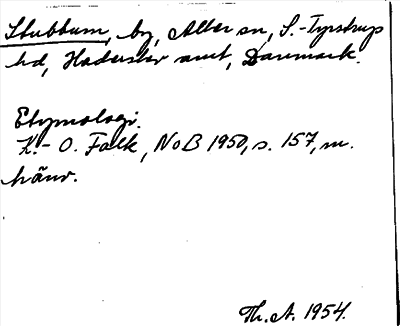 Stubbum, by, Aller sn, S.-Tyrstrup
hd, Haderslev amt, Danmark.
Etymologi.
K.-O. Falk, NoB 1950, s. 157, m.
hänv.
Th. A. 1954.